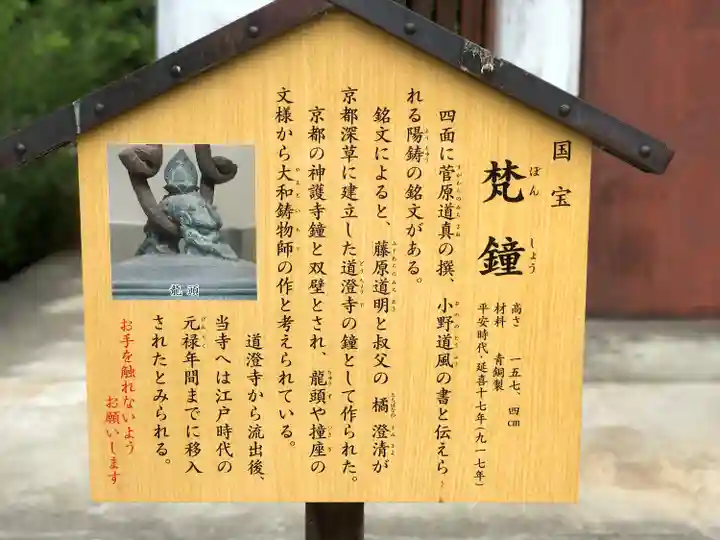 国宝
梵鐘
ぼん しょう
高さ 一五七、四㎝
材料 青銅製
平安時代・延喜十七年(九一七年)
四面に菅原道真の撰、小野道風の書と伝えら
れる陽鋳の銘文がある。
銘文によると、藤原道明と叔父の橘澄清が
京都深草に建立した道澄寺の鐘として作られた。
京都の神護寺鐘と双壁とされ、龍頭や撞座の
文様から大和鋳物師の作と考えられている。
道澄寺から流出後、
当寺へは江戸時代の
元禄年間までに移入
されたとみられる。
お手を触れないよう
お願いします
龍頭